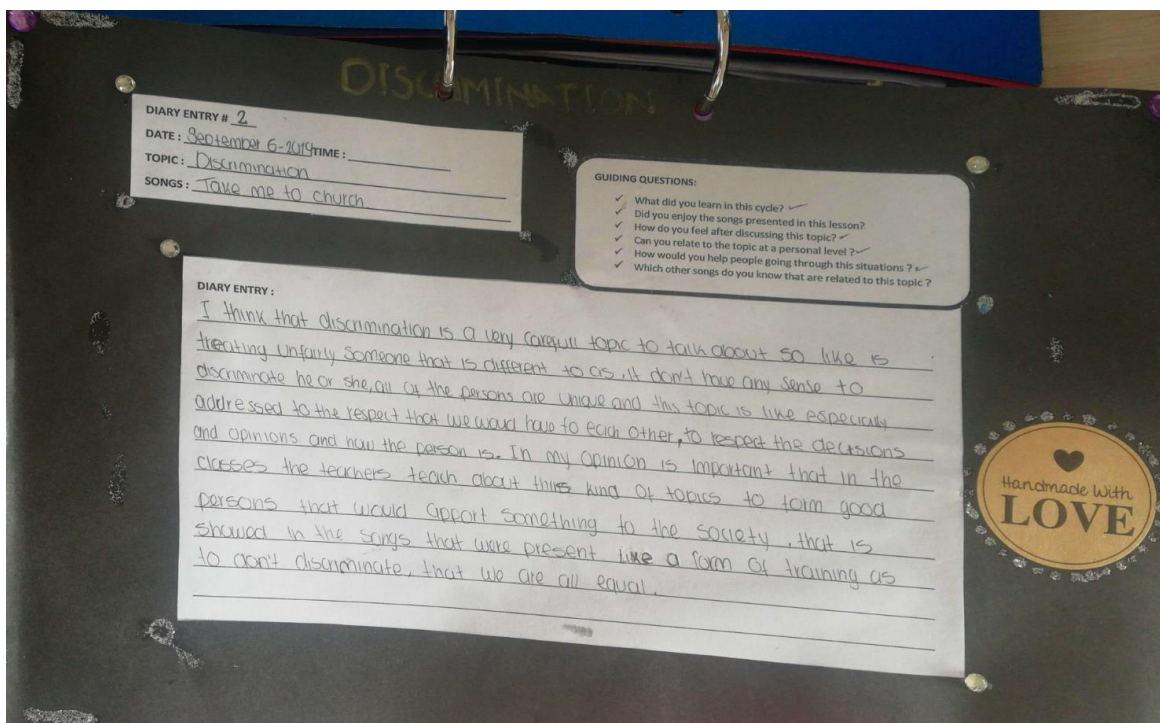 DISCRIMINATION
DIARY ENTRY # 2
DATE : September 6-2019 TIME :
TOPIC : Discrimination
SONGS : Take me to church
GUIDING QUESTIONS:
✓ What did you learn in this cycle? ✓
✓ Did you enjoy the songs presented in this lesson?
✓ How do you feel after discussing this topic? ✓
✓ Can you relate to the topic at a personal level ? ✓
✓ How would you help people going through this situations ? ✓
✓ Which other songs do you know that are related to this topic ?
DIARY ENTRY :
I think that discrimination is a very carefull topic to talk about so like is
treating unfairly someone that is different to as, it don't have any sense to
discriminate he or she, all of the persons are unique and this topic is like especially
addressed to the respect that we woud have to each other, to respect the decisions
and opinions and how the person is. In my opinion is important that in the
classes the teachers teach about this kind of topics to form good
persons that would apport something to the society, that is
showed in the songs that were present like a form of training as
to don't discriminate, that we are all equal.
Handmade With
LOVE